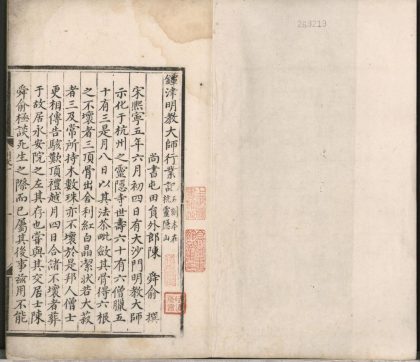 鐔津明教大師行業記 石刻本在杭靈隱山
尚書屯田員外郎陳 舜俞 撰
宋熙寧五年六月初四日有大沙門明教大師
示化于杭州之靈隱寺世壽六十有六僧臘五
十有三是月八日以其法荼毗斂其骨得六根
之不壞者三頂骨出舍利紅白晶潔狀若大菽
者三及常所持木數珠亦不壞於是邦人僧士
更相傳告駭歎頂禮越月四日合諸不壞者葬
于故居永安院之左其存也嘗與其交居士陳
舜俞極談死生之際而已屬其後事諭用不能
269219